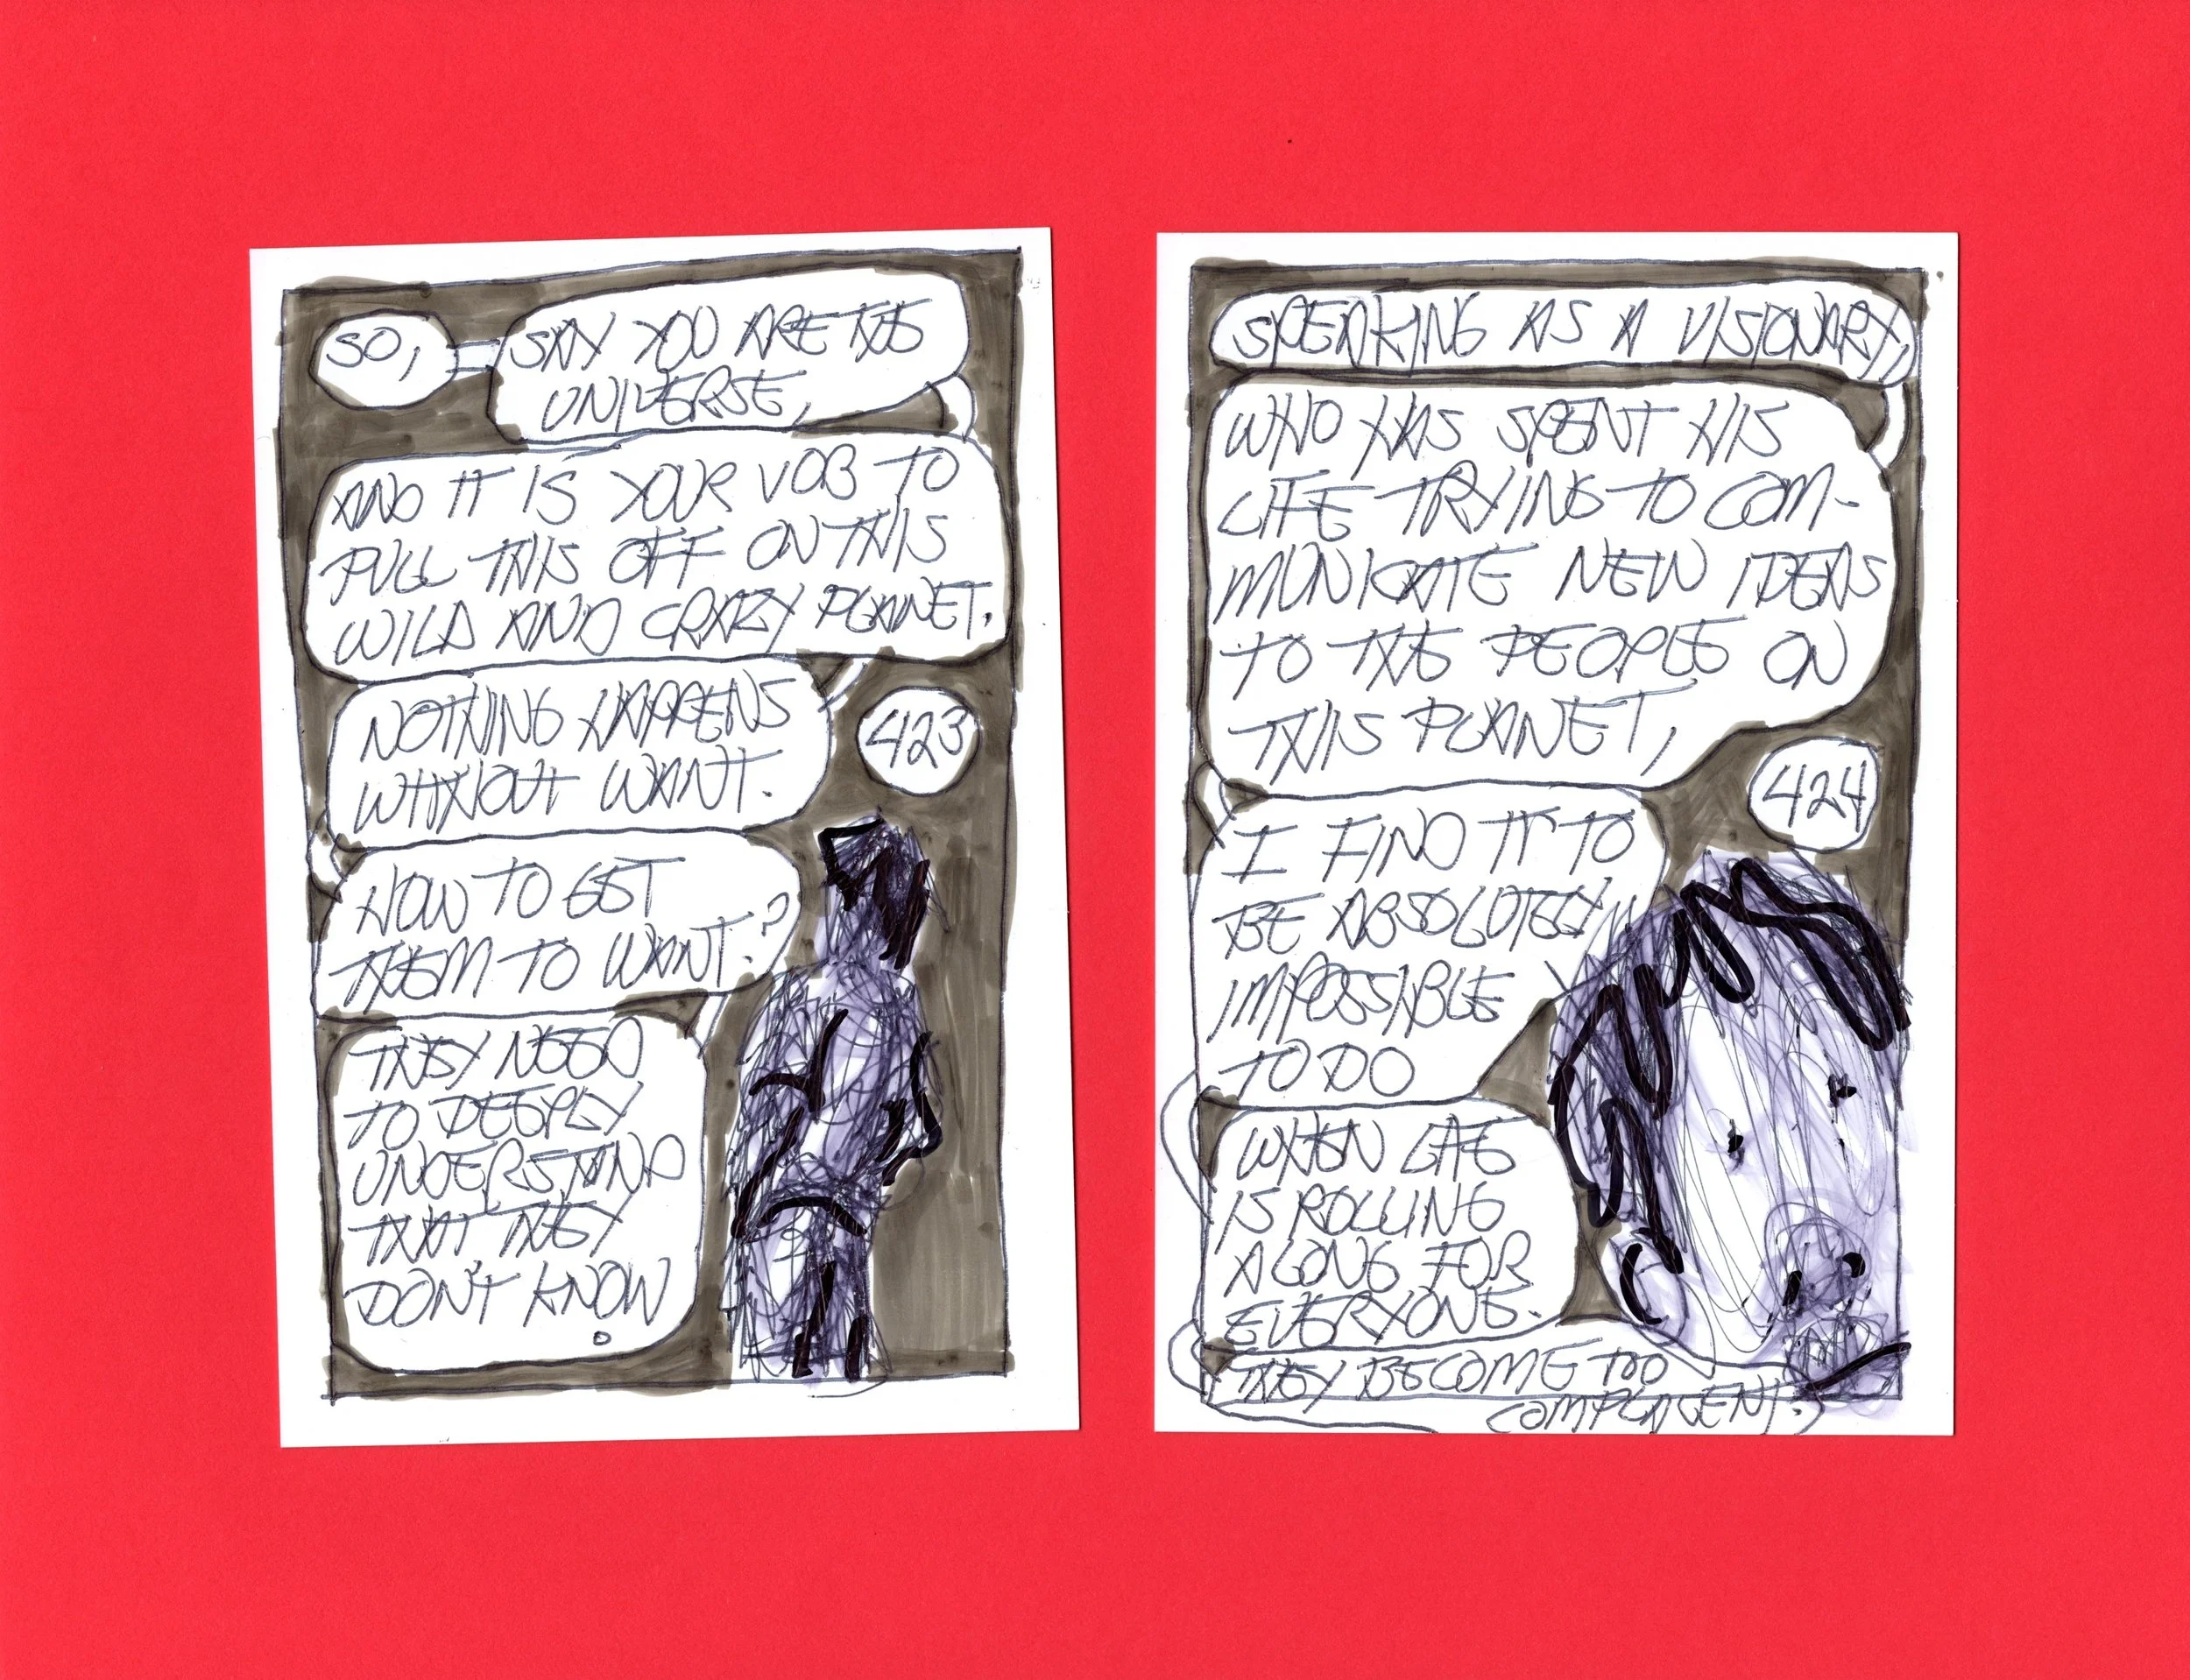 SO,
SAY YOU ARE THE
UNIVERSE,
AND IT IS YOUR JOB TO
PULL THIS OFF ON THIS
WILD AND CRAZY PLANET.
NOTHING HAPPENS
WITHOUT WANT.
423
HOW TO GET
THEM TO WANT?
THEY NEED
TO DEEPLY
UNDERSTAND
THAT THEY
DON'T KNOW
.
SPEAKING AS A VISIONARY,
WHO HAS SPENT HIS
LIFE TRYING TO COM-
MUNICATE NEW IDEAS
TO THE PEOPLE ON
THIS PLANET,
424
I FIND IT TO
BE ABSOLUTELY
IMPOSSIBLE
TO DO
WHEN LIFE
IS ROLLING
ALONG FOR
EVERYONE.
THEY BECOME TOO
COMPLACENT.